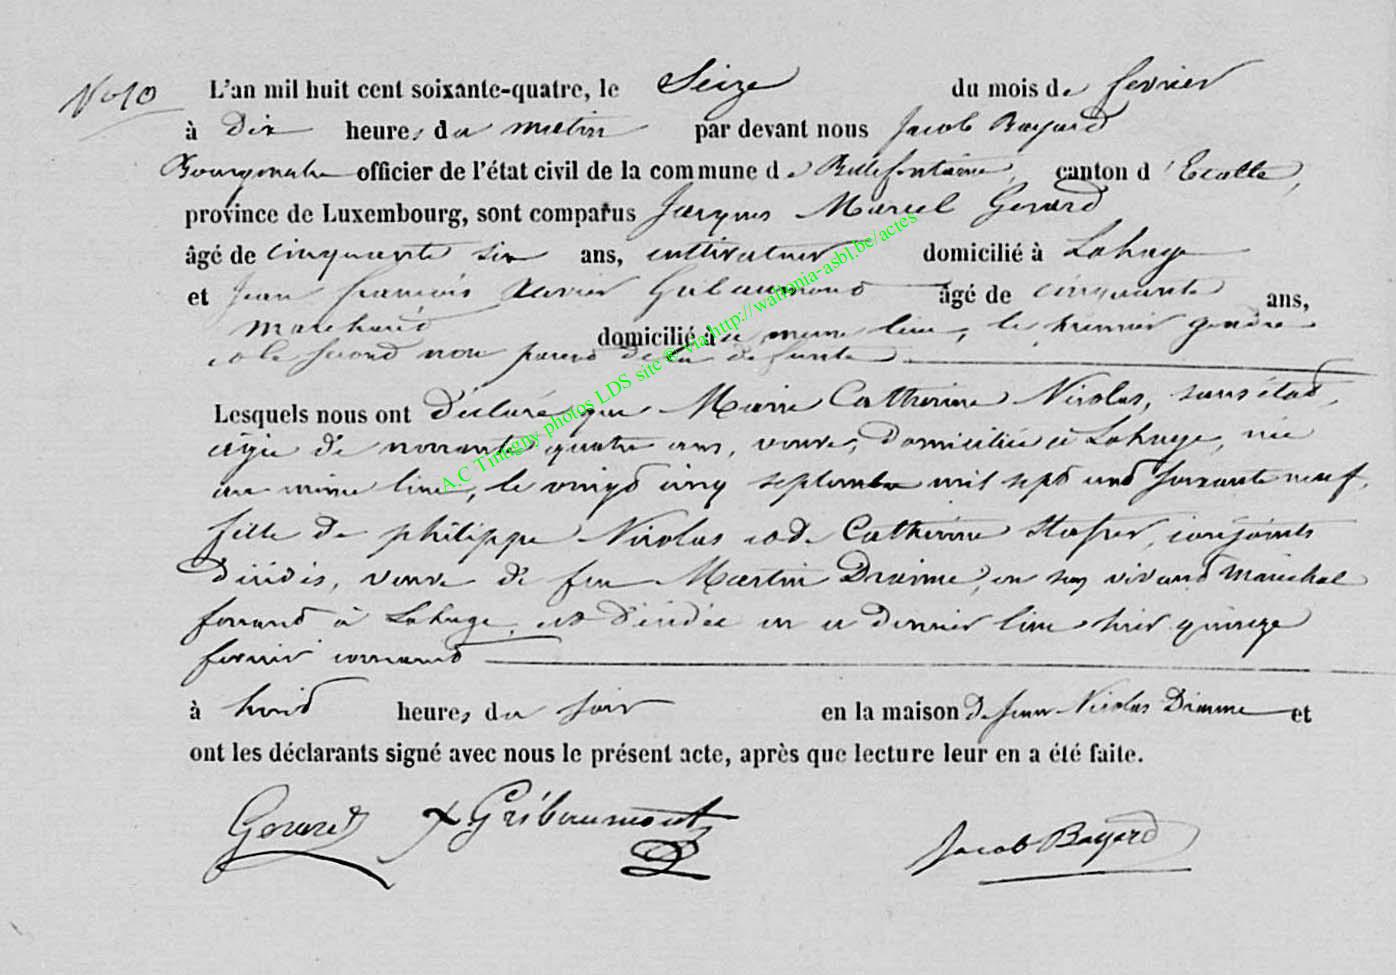 No 10
L'an mil huit cent soixante-quatre, le Seize du mois de fevrier
à Dix heures du matin par devant nous Jacob Bayard
Bourgmestre officier de l'état civil de la commune de Bellefontaine, canton d'Etalle,
province de Luxembourg, sont comparus Jacques Marcel Gerard
âgé de cinquante six ans, cultivateur domicilié à Lahage
et Jean françois Xavier Gribaumont âgé de cinquante ans,
marchand domicilié à ce meme lieu, le premier gendre
et le second non parent de la defunte
Lesquels nous ont déclaré que Marie Catherine Nicolas, sans état,
agée de nonante quatre ans, veuve, domiciliée à Lahage, née
au même lieu, le vingt cinq septembre mil sept cent soixante neuf,
fille de philippe Nicolas et de Catherine, conjoints
décédés, veuve de feu Martin Draime, en son vivant marechal
ferrant à Lahage, est décédée en ce dernier lieu hier quinze
fevrier courant
à huit heures du soir en la maison de Jean Nicolas Draime et
ont les déclarants signé avec nous le présent acte, après que lecture leur en a été faite.
Gerard X Gribaumont Jacob Bayard
A.C Tintigny photos LDS site © via http://wallonia-asbl.be/actes